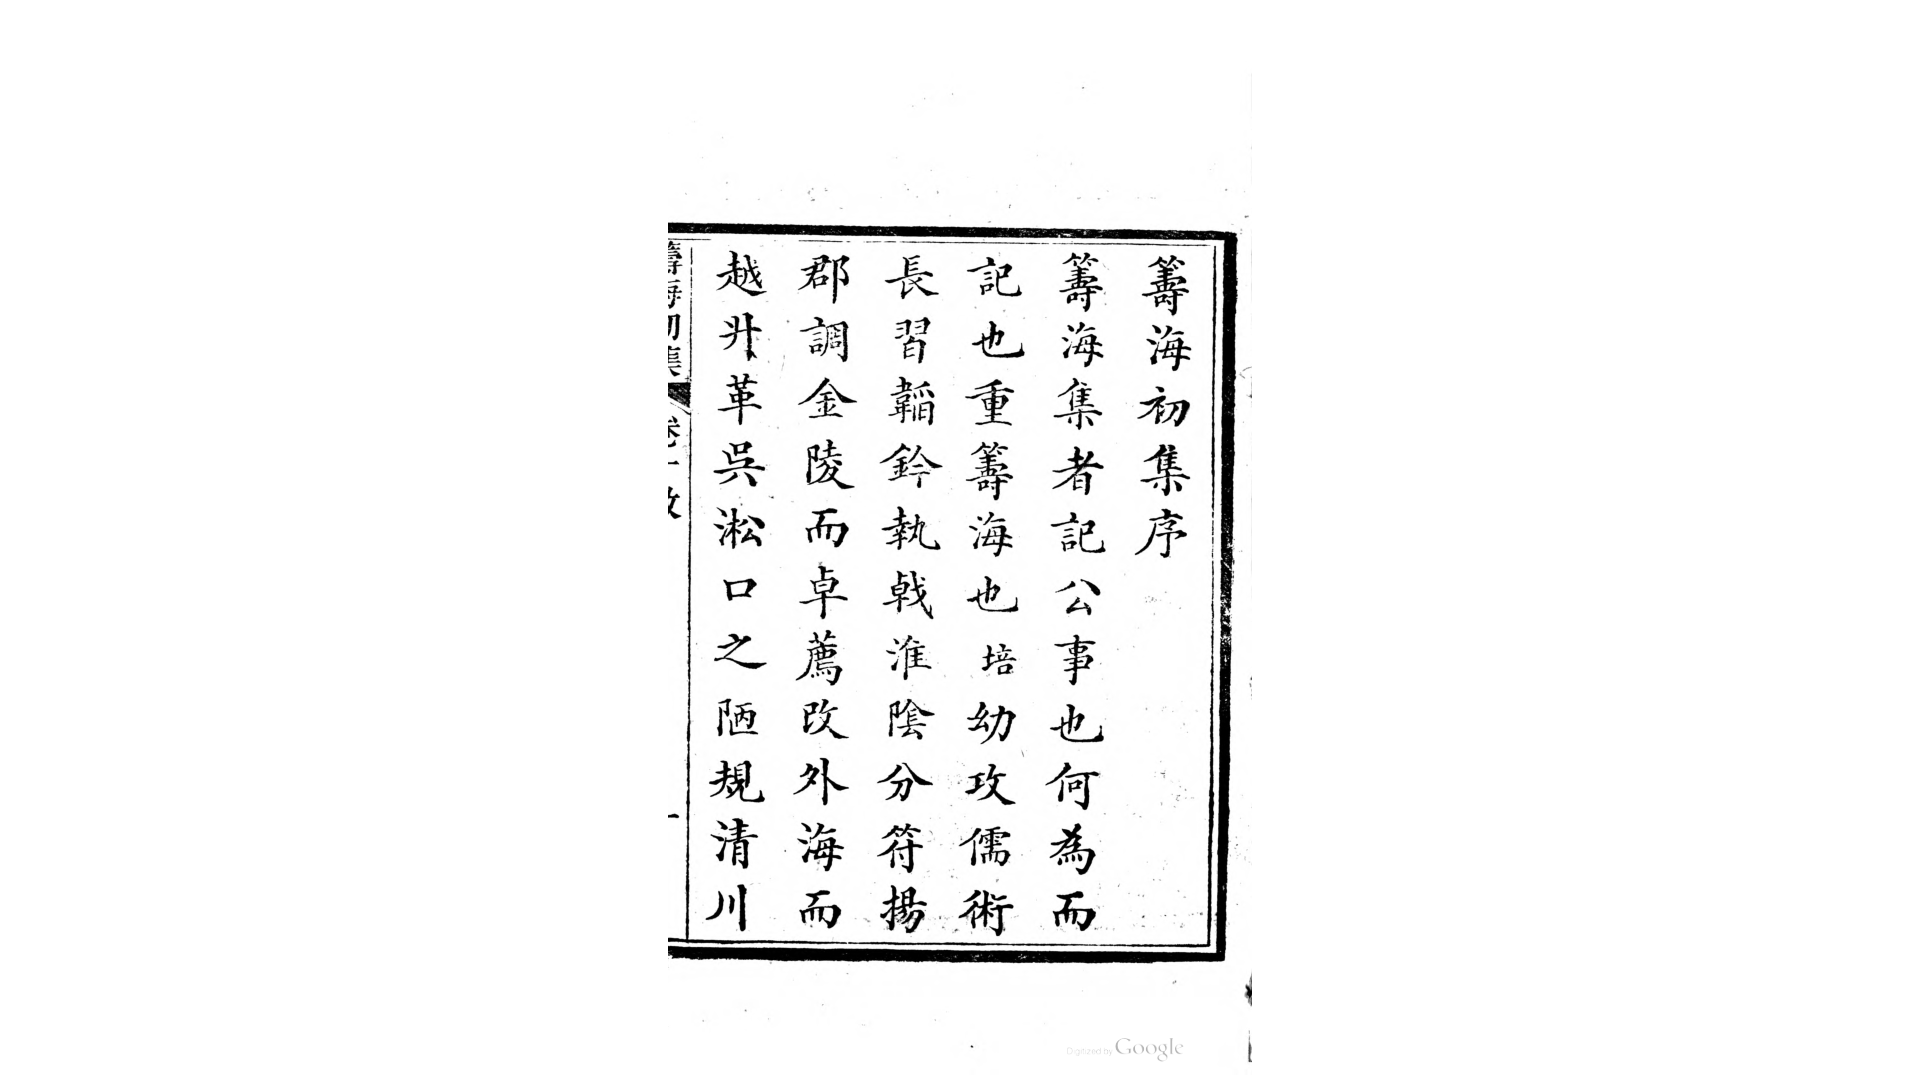 籌海初集序
籌海集者記公事也何為而
記也重籌海也培幼攻儒術
長習韜鈐執戟淮陰分符揚
郡調金陵而卓薦改外海而
越升革吳淞口之陋規清川
籌海初集
Digitized by Google